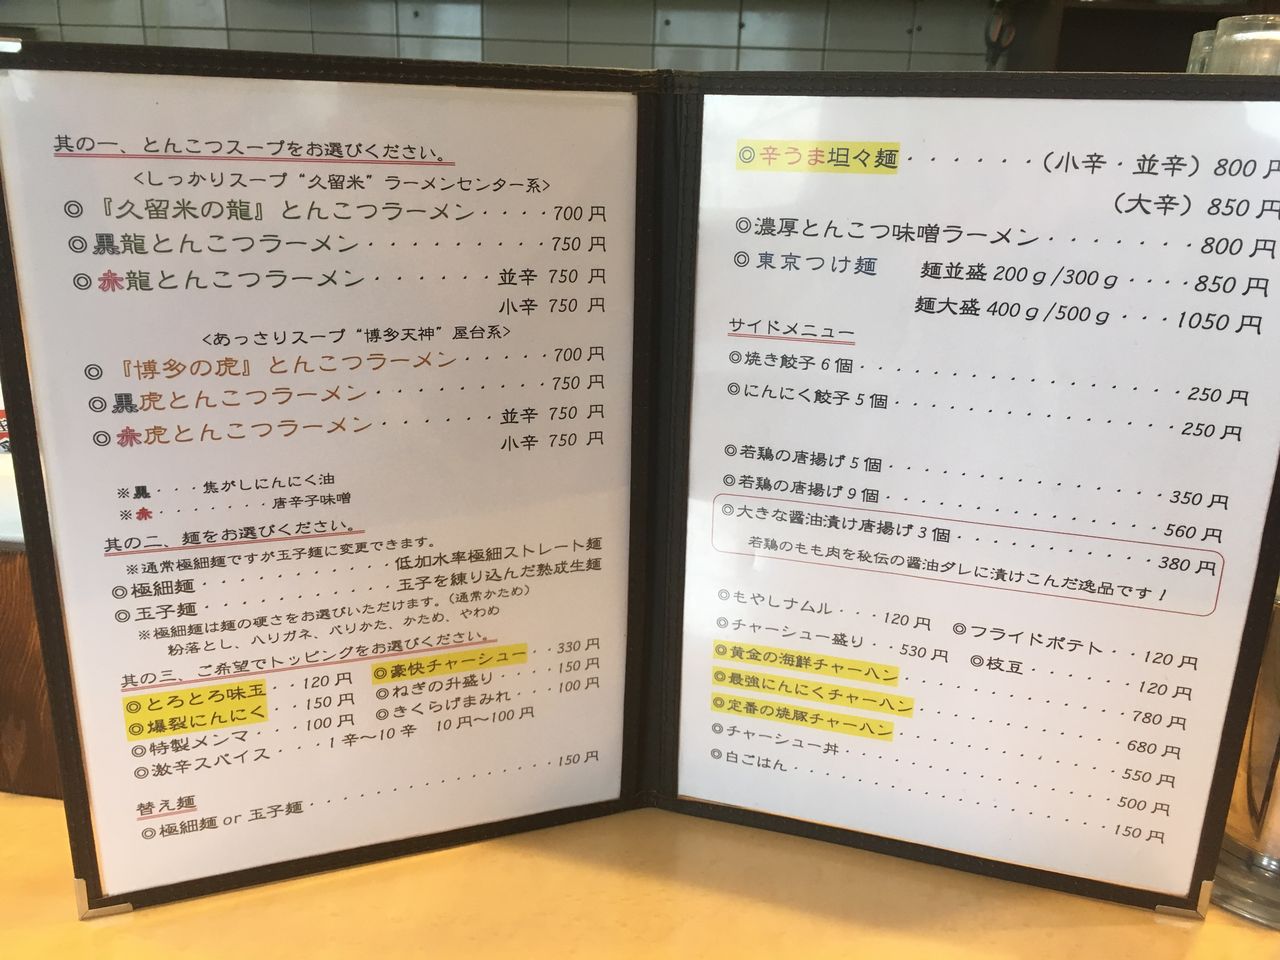 其の一、とんこつスープをお選びください。
<しっかりスープ“久留米”ラーメンセンター系>
◎『久留米の龍』とんこつラーメン・・・・700円
◎黒龍とんこつラーメン・・・・・・・・・750円
◎赤龍とんこつラーメン・・・・・・並辛 750円
小辛 750円
<あっさりスープ“博多天神”屋台系>
◎『博多の虎』とんこつラーメン・・・・・700円
◎黒虎とんこつラーメン・・・・・・・・・750円
◎赤虎とんこつラーメン・・・・・・並辛 750円
小辛 750円
※黒・・・焦がしにんにく油
※赤・・・・・・・唐辛子味噌
其の二、麺をお選びください。
※通常極細麺ですが玉子麺に変更できます。
◎極細麺・・・・・・・・・・・低加水率極細ストレート麺
◎玉子麺・・・・・・・・・・・玉子を練り込んだ熟成生麺
※極細麺は麺の硬さをお選びいただけます。（通常かため）
粉落とし、ハリガネ、バリかた、かため、やわめ
其の三、ご希望でトッピングをお選びください。
◎とろとろ味玉・・120円 ◎豪快チャーシュー・・330円
◎爆裂にんにく・・150円 ◎ねぎの升盛り・・・・150円
◎特製メンマ・・・100円 ◎きくらげまみれ・・・100円
◎激辛スパイス・・・1辛～10辛 10円～100円
替え麺
◎極細麺 or 玉子麺・・・・・・・・・・・・・・150円
◎辛うま坦々麺・・・・・・（小辛・並辛）800円
（大辛）850円
◎濃厚とんこつ味噌ラーメン・・・・・・・800円
◎東京つけ麺 麺並盛200g/300g・・・・850円
麺大盛400g/500g・・・1050円
サイドメニュー
◎焼き餃子6個・・・・・・・・・・・・・・・250円
◎にんにく餃子5個・・・・・・・・・・・・・250円
◎若鶏の唐揚げ5個・・・・・・・・・・・・・350円
◎若鶏の唐揚げ9個・・・・・・・・・・・・・560円
◎大きな醤油漬け唐揚げ3個・・・・・・・・・380円
若鶏のもも肉を秘伝の醤油ダレに漬けこんだ逸品です！
◎もやしナムル・・・120円 ◎フライドポテト・・120円
◎チャーシュー盛り・・530円 ◎枝豆・・・・・・120円
◎黄金の海鮮チャーハン・・・・・・・・・・・780円
◎最強にんにくチャーハン・・・・・・・・・・680円
◎定番の焼豚チャーハン・・・・・・・・・・・550円
◎チャーシュー丼・・・・・・・・・・・・・・500円
◎白ごはん・・・・・・・・・・・・・・・・・150円